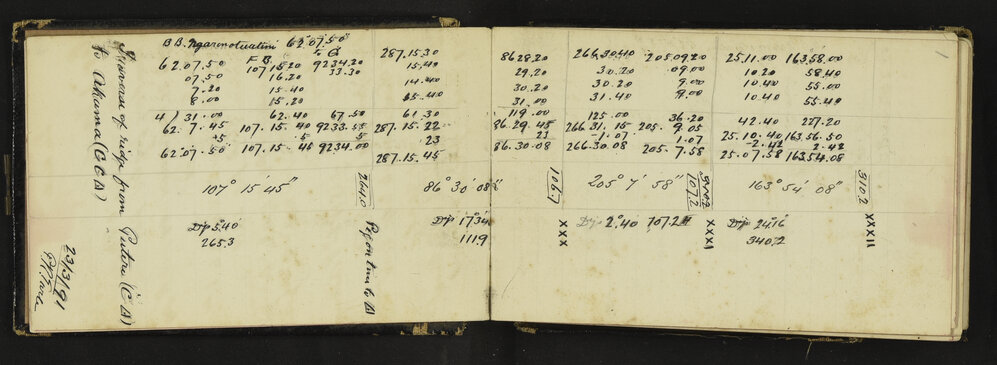 Traverse of ridge from Puture (C △)
to Ahuma (G C △)
23/3/91
B B. Ngarenotuatini 62°07.50"
F B. to G
62.07.50 107.15.20 9234.20 287.15.30
07.50 16.20 33.30 15.40
7.20 15.40 14.40
8.00 15.20 15.40
4/31.00 62.40 67.50 61.30
62.7.45 107.15.40 9233.55 287.15.22
.5 .5 5 .23
62°07.50 107.15.45 9234.00 287.15.45
107° 15' 45"
2641.0
Dip 5.40
265.3
Dip 17°34'
111.9
1
8628.20 266.30.40 205.09.20 25.11.00 163.58.00
29.20 30.20 09.00 10.20 58.40
30.20 30.20 9.00 10.40 55.00
31.00 31.40 9.00 10.40 55.40
119.00 125.00 36.20 42.40 227.20
86.29.45 266.31.15 205.9.05 25.10.40 163.56.50
23 -1.07 1.07 -2.42 2.42
86.30.08 266.30.08 205.7.58 25.07.58 163.54.08
86° 30' 08"
106.7
205° 7' 58"
107.2
163° 54' 08"
310.2
XXX
Dip 2°.40 107.2
XXXI
Dip 24°16
340.2
XXXII